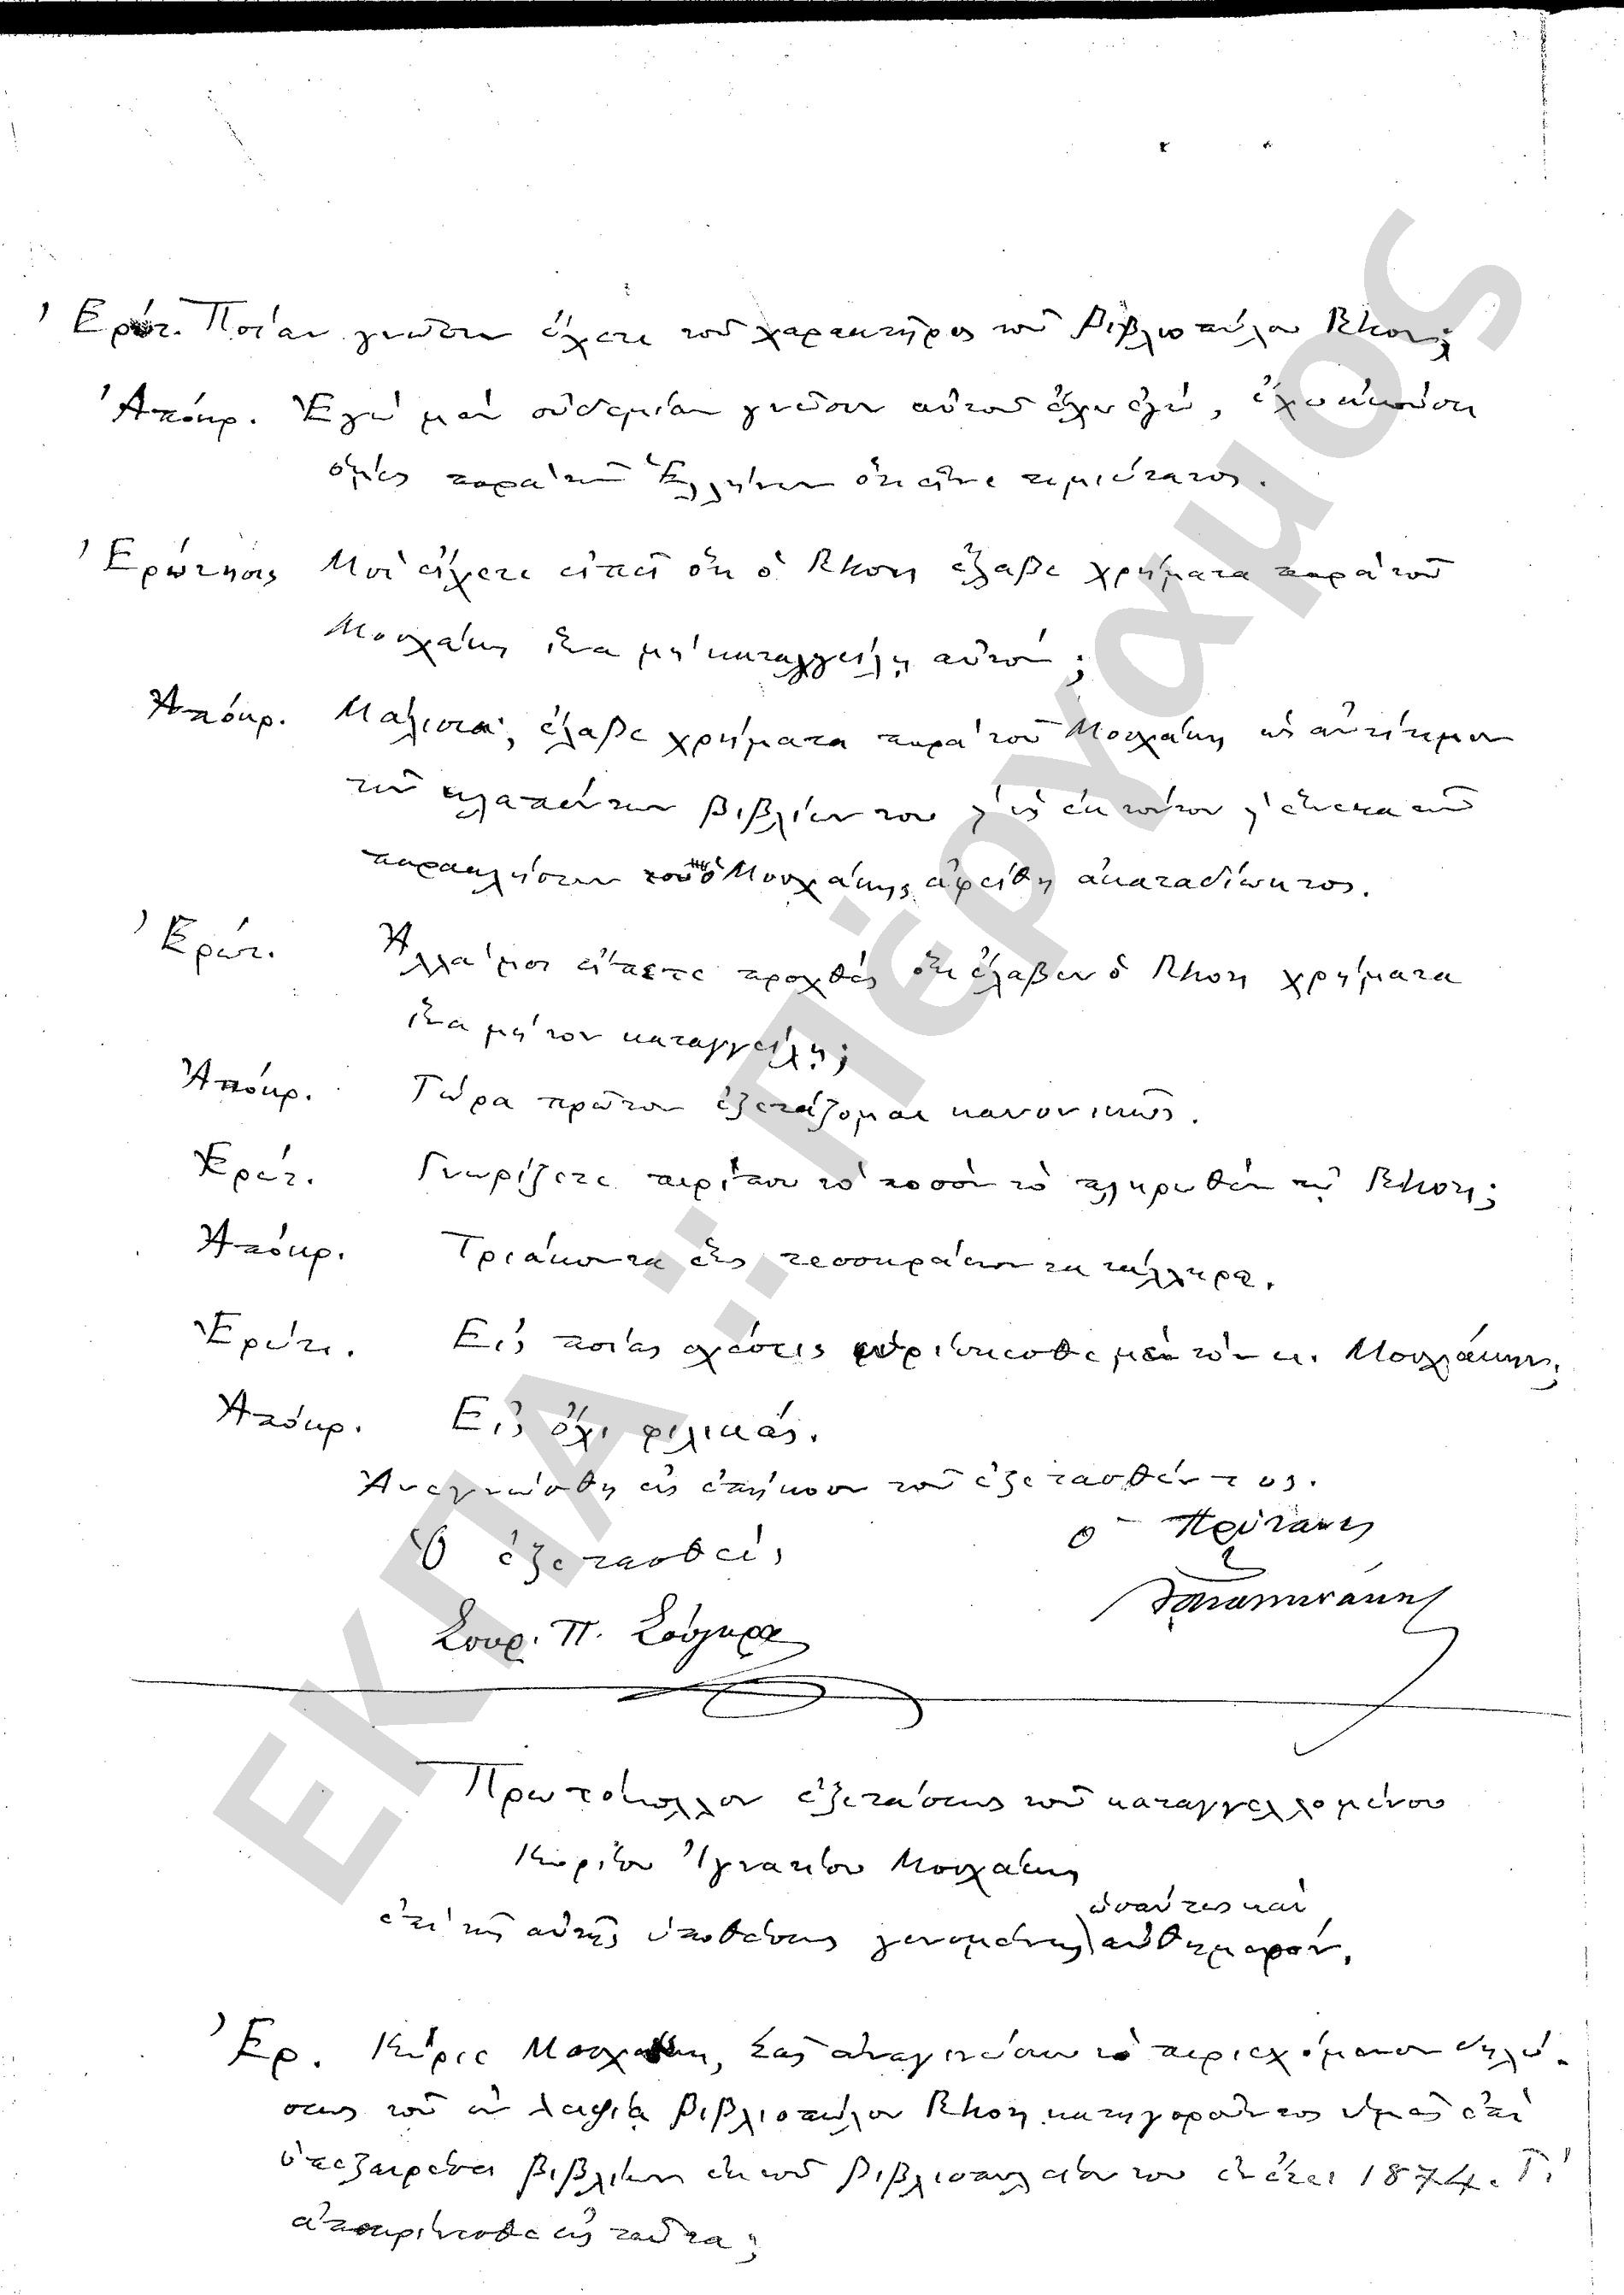 Ἐρώτ. Ποίαν γνῶσιν ἔχετε τοῦ χαρακτῆρος τοῦ βιβλιοπώλου Rhon;
Ἀπόκρ. Ἐγὼ μὲν οὐδεμίαν γνῶσιν αὐτοῦ ἔχω ἐγώ, ἔχω ἀκούσει
ὅμως παρὰ τῶν Ἑλλήνων ὅτι εἶνε τιμιώτατος.
Ἐρώτησις Μοὶ εἴχετε εἰπεῖ ὅτι ὁ ἔλαβε χρήματα παρὰ τοῦ
Μοσχάκη ἵνα μὴ καταγγείλῃ αὐτόν;
Ἀπόκρ. Μάλιστα, ἔλαβε χρήματα παρὰ τοῦ Μοσχάκη ὡς ἀντίτιμον
τῶν κλαπέντων βιβλίων του καὶ ὡς ἐκ τούτου καὶ ἕνεκα τῶν
παρακλήσεων ὁ Μοσχάκης ἀφείθη ἀκαταδίωκτος.
Ἐρώτ. Ἀλλά μοι εἴπετε προχθὲς ὅτι ἔλαβεν ὁ χρήματα
ἵνα μὴ τον καταγγείλῃ;
Ἀπόκρ. Τώρα πρῶτον ἐξετάζομαι κανονικῶς.
Ἐρώτ. Γνωρίζετε περίπου τὸ ποσὸν τὸ πληρωθὲν τῷ
Ἀπόκρ. Τριάκοντα ἕως τεσσαράκοντα τάλληρα.
Ἐρώτ. Εἰς ποίας σχέσεις εὑρίσκεσθε μὲ τὸν κ. Μοσχάκην;
Ἀπόκρ. Εἰς ὄχι φιλικάς.
Ἀνεγνώσθη εἰς ἐπήκοον τοῦ ἐξετασθέντος.
Ὁ ἐξετασθεὶς
ὁ Πρύτανις
Σπυρ. Π.
Πρωτόκολλον ἐξετάσεως τοῦ καταγγελλομένου
Κυρίου Ἰγνατίου Μοσχάκη
ἐπὶ τῆς αὐτῆς ὑποθέσεως γενομένης ὡσαύτως καὶ αὐθημερόν.
Ἐρ. Κύριε Μοσχάκη, Σᾶς ἀναγινώσκω τὸ περιεχόμενον δηλώ-
σεως τοῦ ἐν Λειψίᾳ βιβλιοπώλου κατηγοροῦντος ὑμᾶς ἐπὶ
ὑπεξαιρέσει βιβλίων ἐκ τοῦ βιβλιοπωλείου του ἐν ἔτει 1874. Τί
ἀποκρίνεσθε εἰς ταῦτα;
ΕΚΠΑ: Πέργαμος